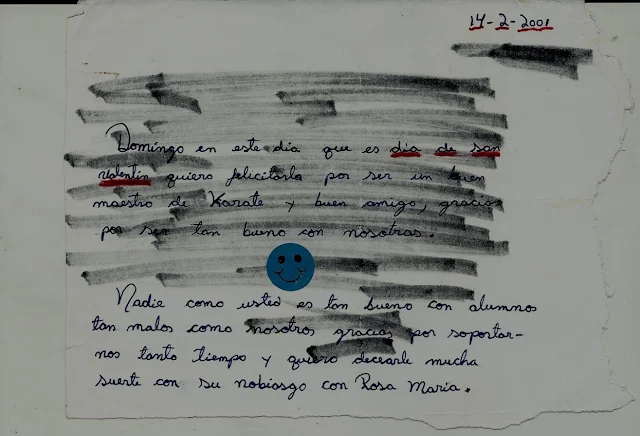 14-2-2001
Domingo en este dia que es dia de san
valentin quiero felicitarla por ser un buen
maestro de Karate y buen amigo, gracias
por ser tan bueno con nosotras.
Nadie como usted es tan bueno con alumnos
tan malos como nosotros gracias por soportar-
nos tanto tiempo y quiero decearle mucha
suerte con su nobiasgo con Rosa Maria.